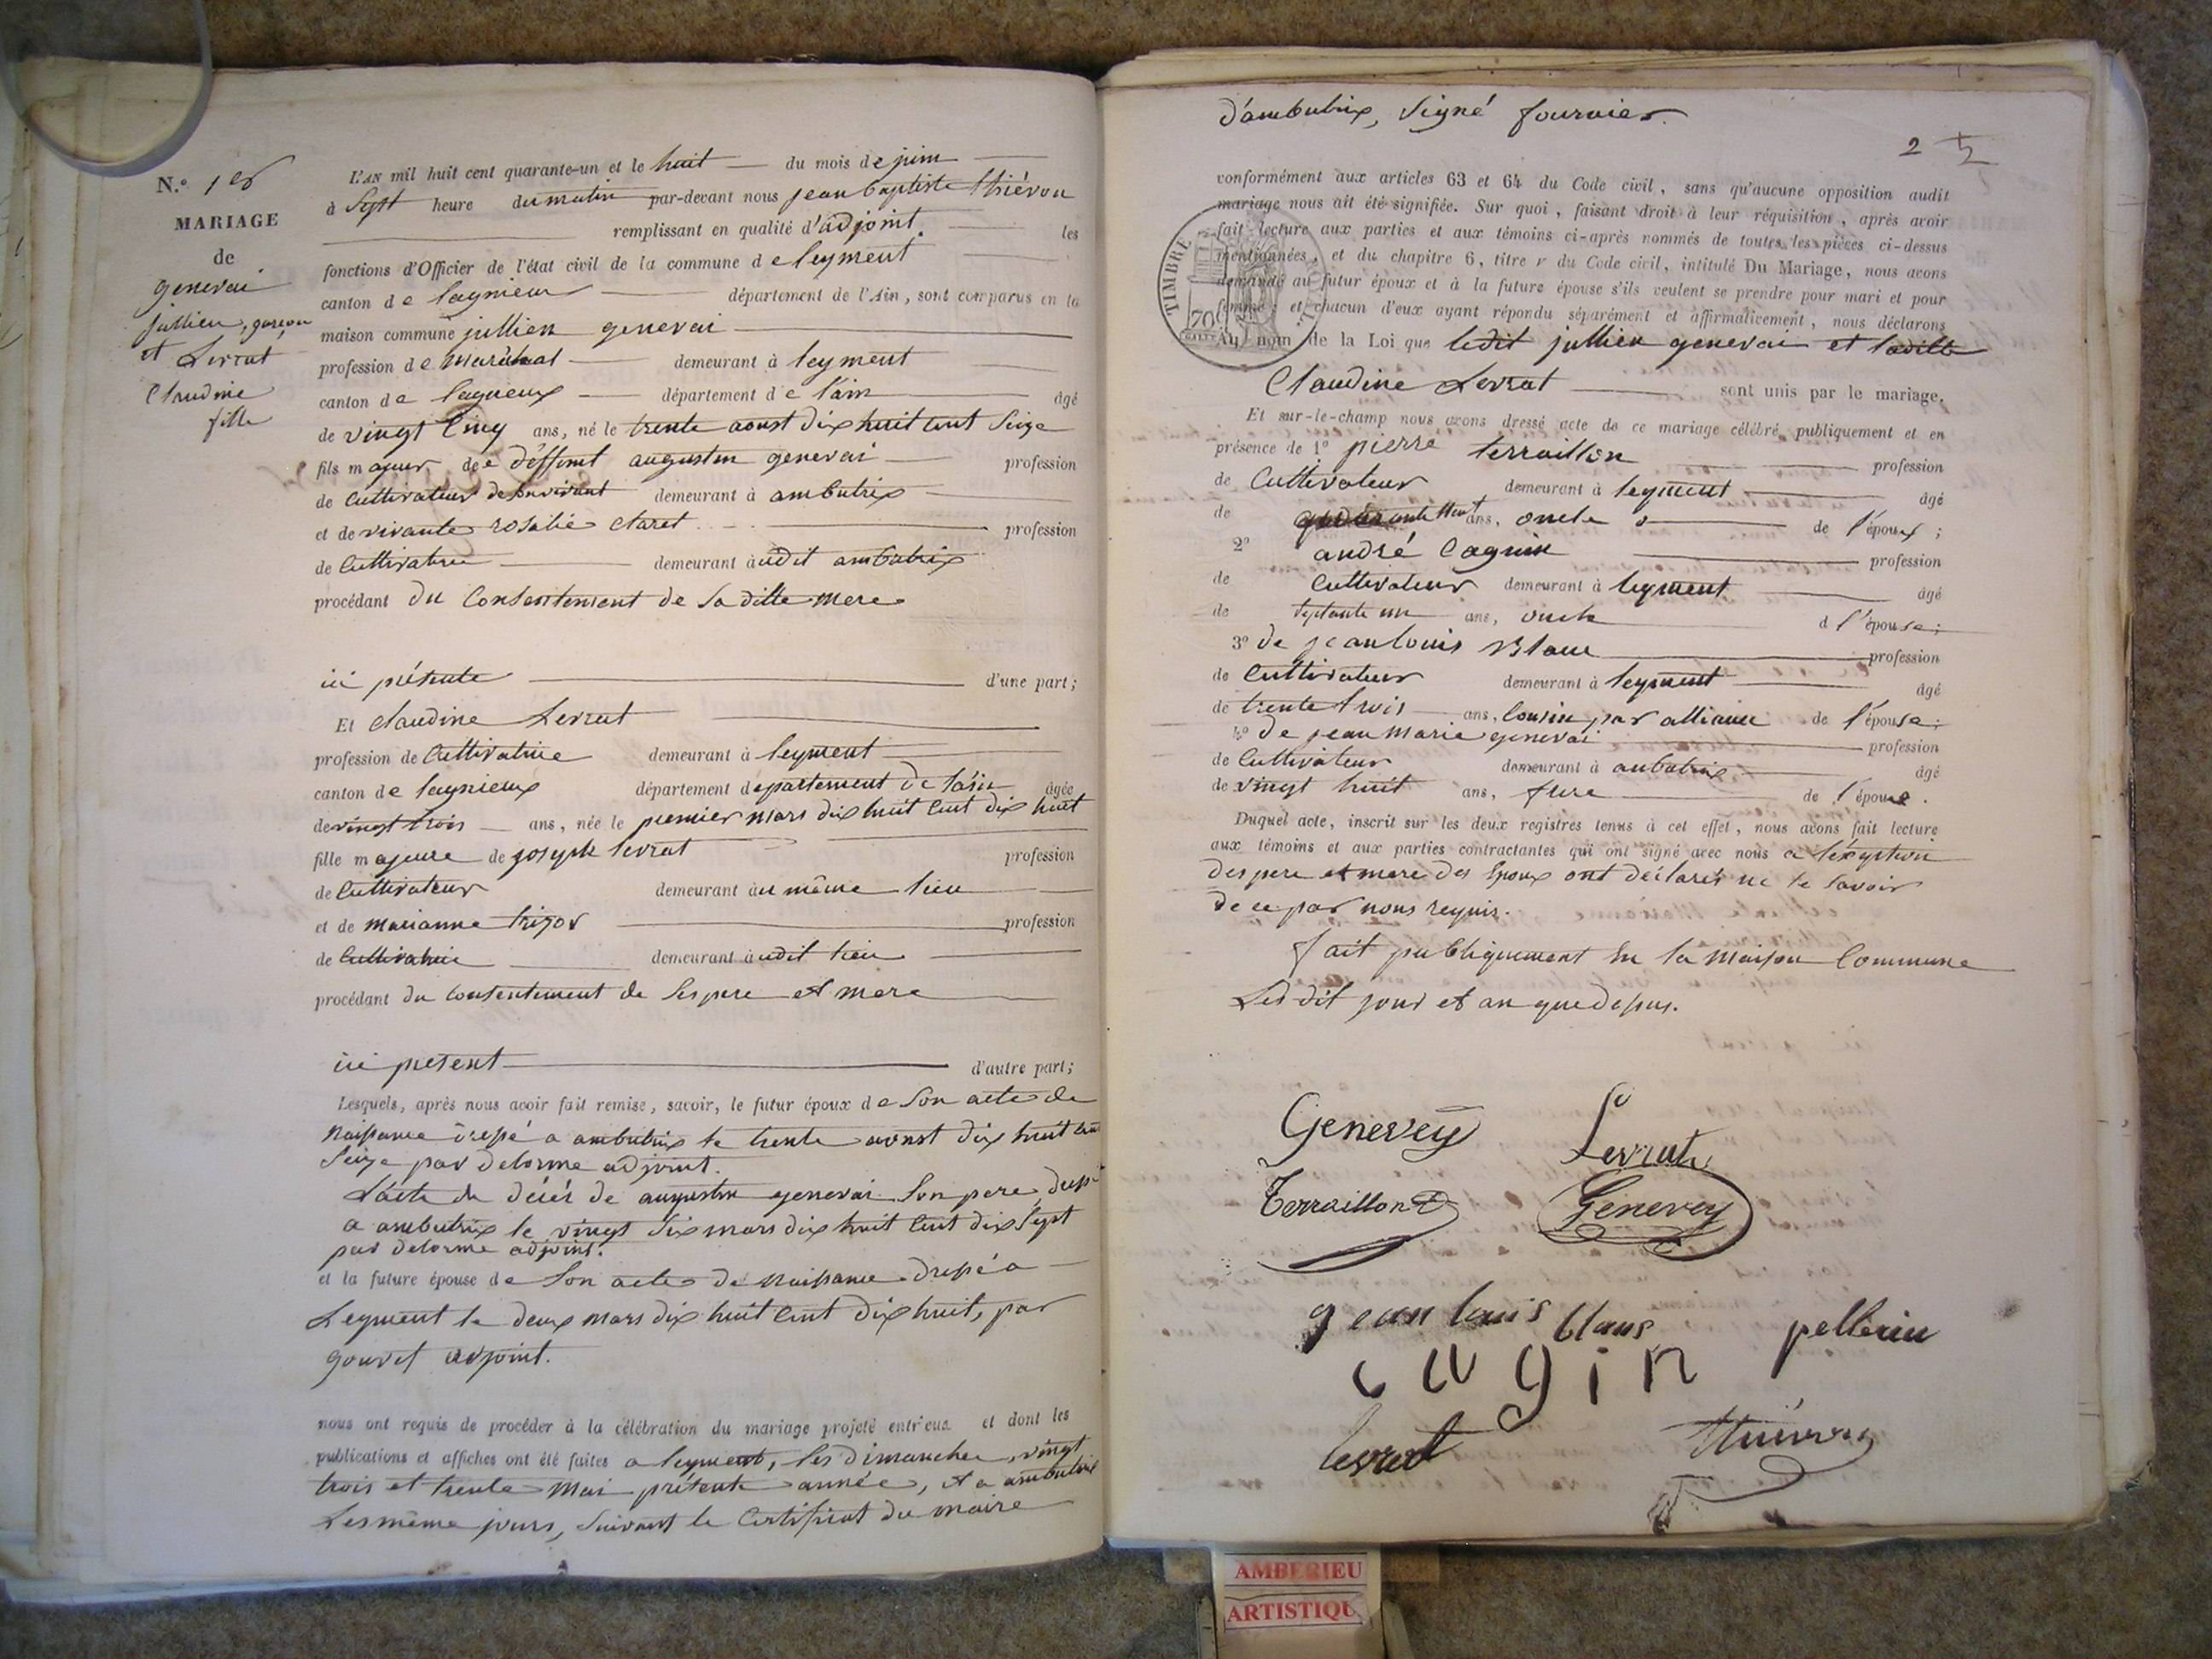 N.o 1er
MARIAGE
de
genevai
jullien, garçon
et Levrat
Claudine
fille
L'AN mil huit cent quarante-un et le huit du mois de juin
à Sept heure du matin par-devant nous jean baptiste thiévon
remplissant en qualité d'adjoint. les
fonctions d'Officier de l'état civil de la commune de leyment
canton de lagnieu département de l'Ain, sont comparus en la
maison commune jullien genevai
profession de Maréchal demeurant à leyment
canton de lagneux département de l'ain âgé
de vingt Cinq ans, né le trente aoust dix huit cent Seize
fils majeur de déffunt augustin genevai profession
de Cultivateur de son vivant demeurant à ambutrix
et de vivante rosalie claret profession
de Cultivatrice demeurant audit ambutrix
procédant du Consentement de Sa ditte mere
ici présente d'une part;
Et claudine Levrat
profession de Cultivatrice demeurant à leyment
canton de lagnieux département departement de l'ain âgée
de vingt trois ans, née le premier mars dix huit cent dix huit
fille majeure de joseph levrat profession
de Cultivateur demeurant au même lieu
et de marianne profession
de Cultivatrice demeurant audit lieu
procédant du consentement de Ses pere et mere
ici present d'autre part;
Lesquels, après nous avoir fait remise, savoir, le futur époux de Son acte de
Naissance dressé a ambutrix le trente aoust dix huit cent
Seize par delorme adjoint.
L'acte de décés de augustin genevai Son pere, dressé
a ambutrix le vingt Six mars dix huit Cent dix Sept
par delorme adjoint.
et la future épouse de Son acte de Naissance dressé a
Leyment le deux mars dix huit Cent dix huit, par
adjoint.
nous ont requis de procéder à la célébration du mariage projeté entr'eux et dont les
publications et affiches ont été faites a leyment, les dimanches, vingt
trois et trente Mai présente année, et a ambutrix
Les même jours, Suivant le Certificat du maire
d'ambutrix, Signé fournier.
2
conformément aux articles 63 et 64 du Code civil, sans qu'aucune opposition audit
mariage nous ait été signifiée. Sur quoi, faisant droit à leur réquisition, après avoir
fait lecture aux parties et aux témoins ci-après nommés de toutes les pièces ci-dessus
mentionnées, et du chapitre 6, titre v du Code civil, intitulé Du Mariage, nous avons
demandé au futur époux et à la future épouse s'ils veulent se prendre pour mari et pour
femme; et chacun d'eux ayant répondu séparément et affirmativement, nous déclarons
Au nom de la Loi que ledit jullien genevai et ladite
TIMBRE
70
Claudine Levrat sont unis par le mariage.
Et sur-le-champ nous avons dressé acte de ce mariage célébré publiquement et en
présence de 1o pierre terraillon profession
de Cultivateur demeurant à leyment âgé
de quarante huit ans, oncle de l'époux;
2o andré Cagnin profession
de Cultivateur demeurant à leyment âgé
de Septante un ans, oncle d l'épouse;
3o de jean louis Blanc profession
de Cultivateur demeurant à leyment âgé
de trente trois ans, Cousin par alliance de l'épouse;
4o de jean marie genevai profession
de Cultivateur demeurant à anbutrix âgé
de vingt huit ans, frere de l'époux.
Duquel acte, inscrit sur les deux registres tenus à cet effet, nous avons fait lecture
aux témoins et aux parties contractantes qui ont signé avec nous a l'exseption
des pere et mere des Epoux ont déclarés ne le Savoir
de ce par nous requis.
fait publiquement En la Maison Commune
Les dit jour et an que dessus.
Genevey
Levrat
Terraillon
Genevey
jean louis blanc
pellerin
cagin
levrat
thiévon
AMBERIEU
ARTISTIQU